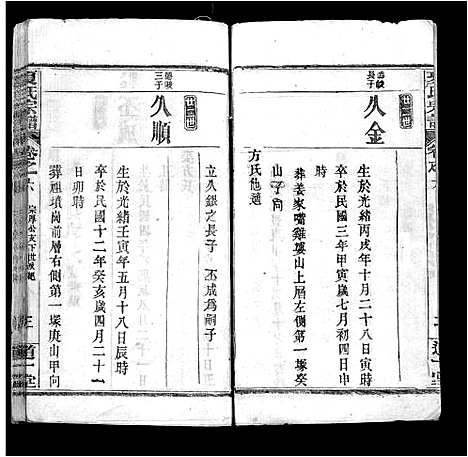 長子
久金
生於光緒丙戌年十月二十八日寅時
卒於民國三年甲寅歲七月初四日申
時葬姜家嘴雞婁山上層左側第一塚癸
山子向
方氏他適
立久銀之長子丕成爲嗣子
三子
久順
生於光緒壬寅年五月十八日辰時
卒於民國十二年癸亥歲四月二十
日卯時
葬祖墳崗前層右側第一塚庚山甲向
夏氏宗譜
卷之六
道一堂